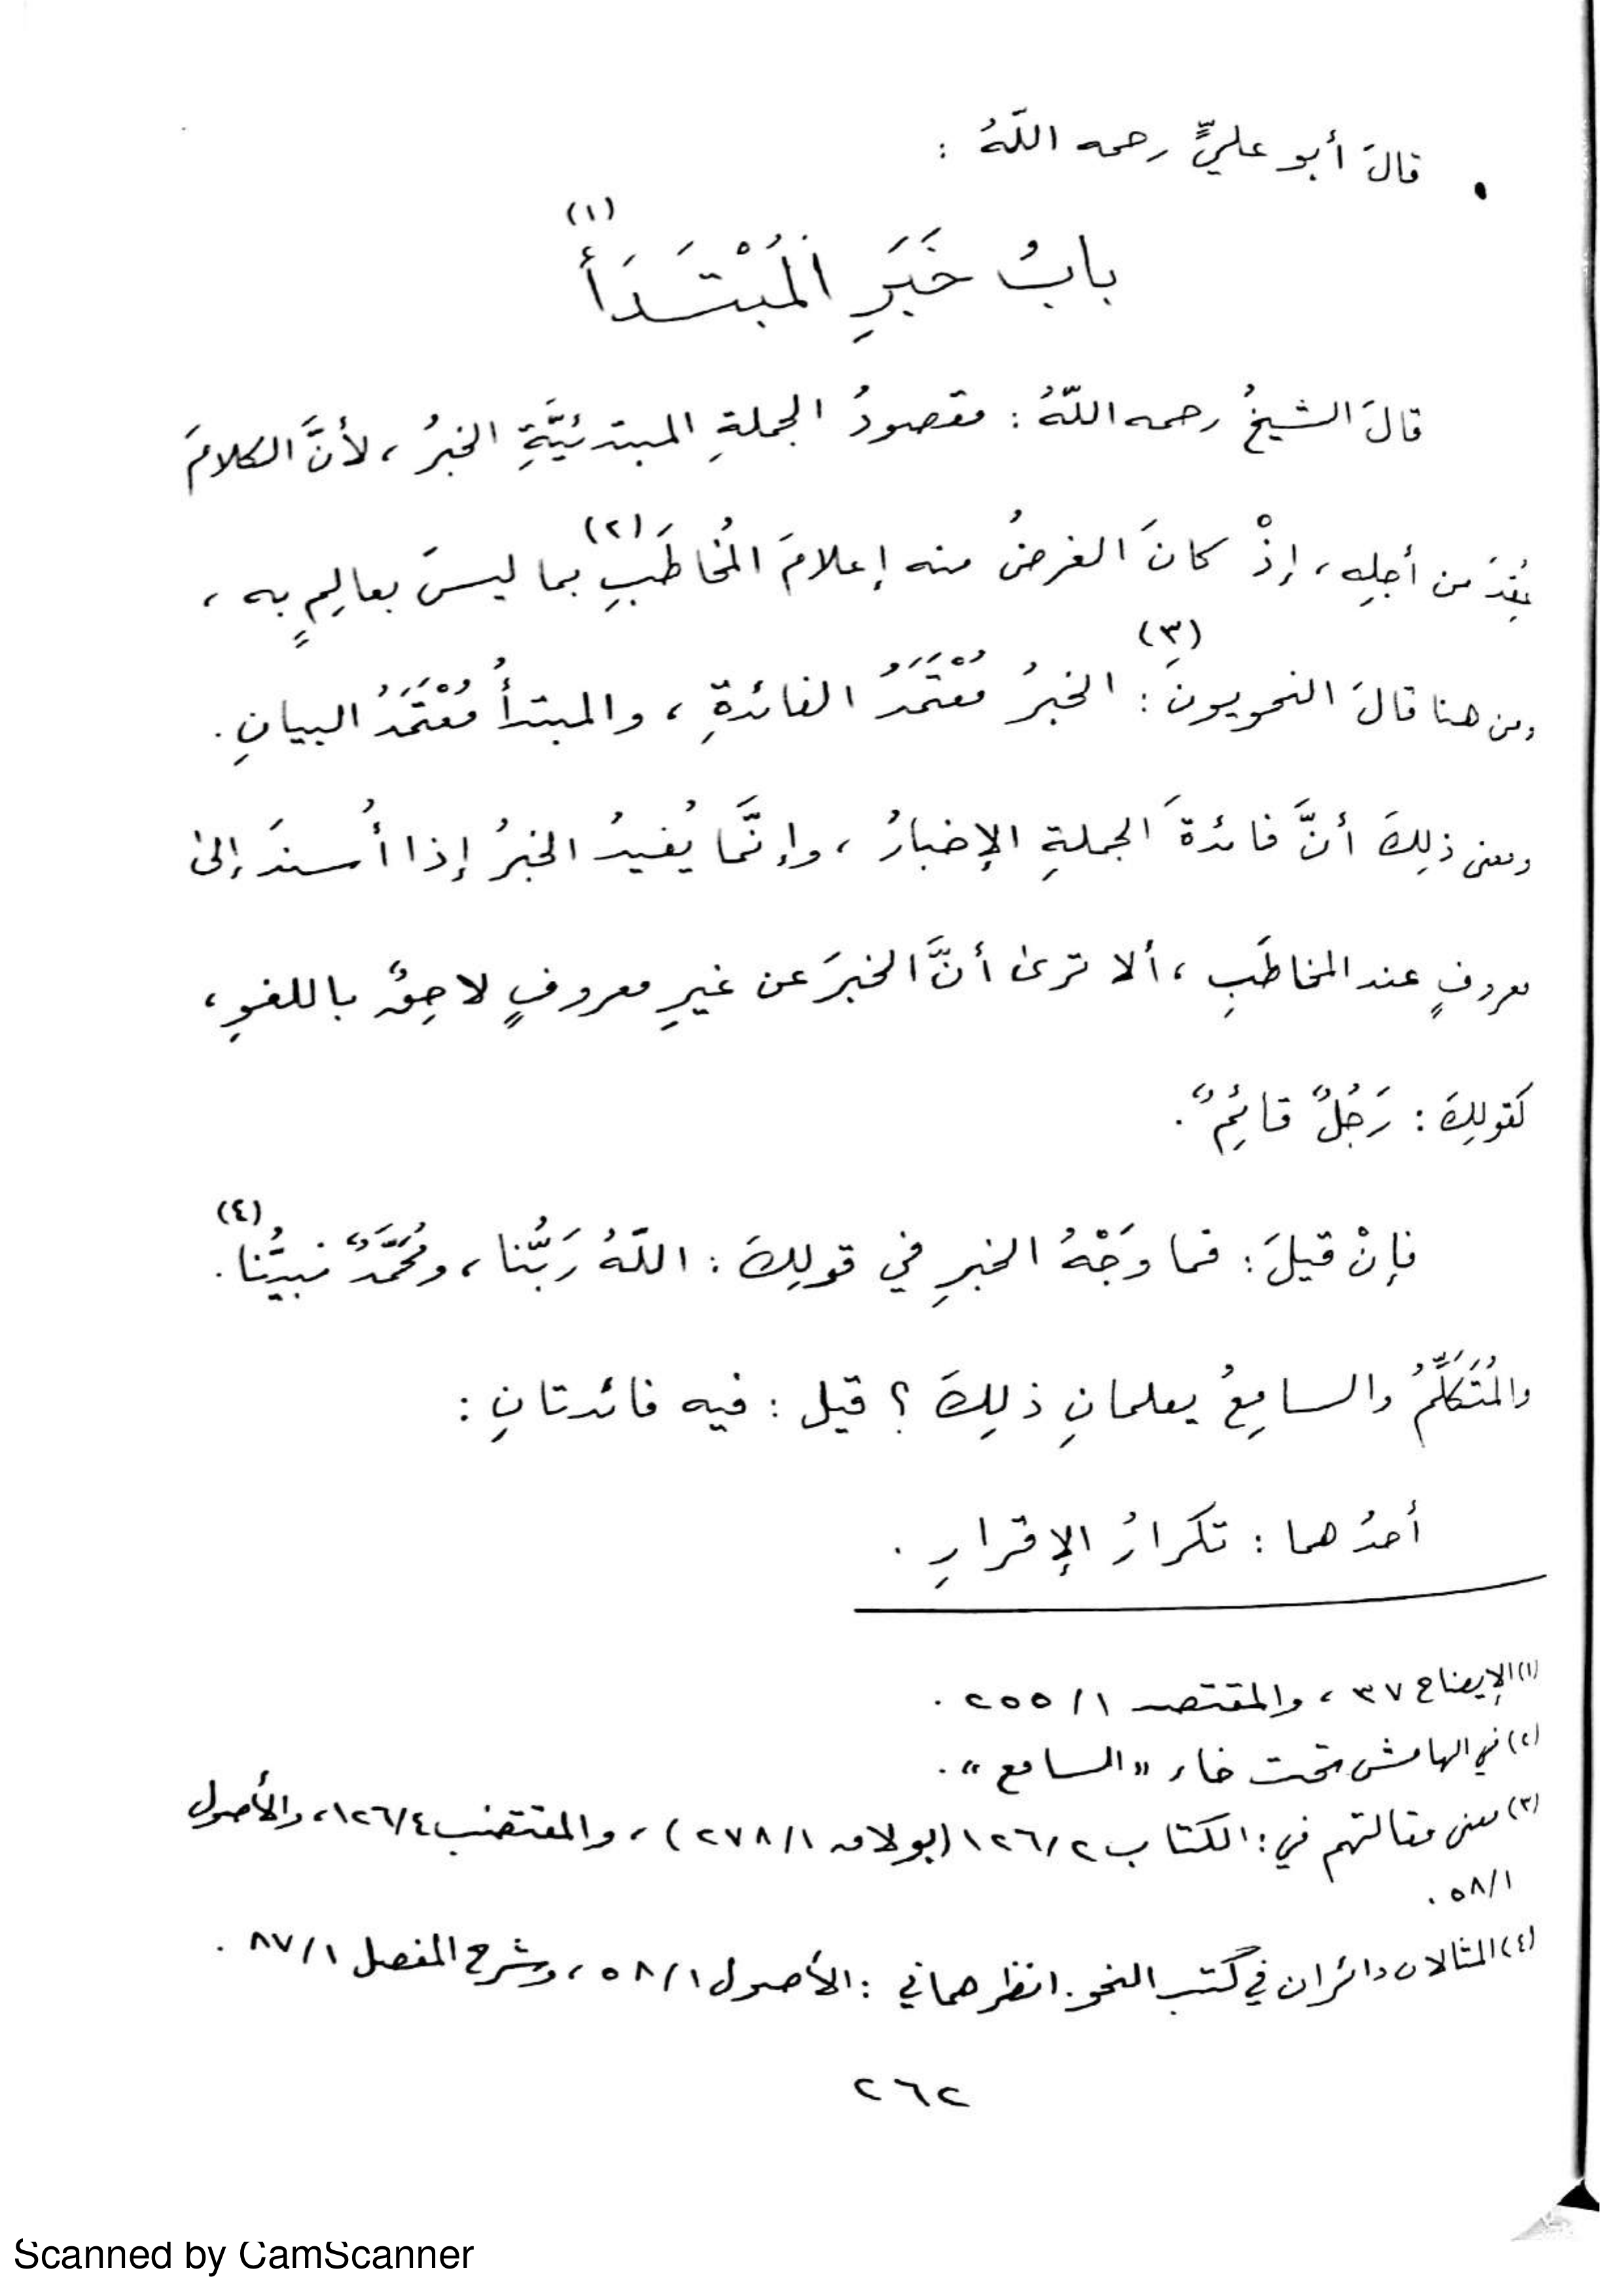 • قالَ أبو عليٍّ رحمه اللّهُ :
بابُ خَبَرِ المُبْتَدَأ (١)
قالَ الشيخُ رحمه اللّهُ : مقصودُ الجملةِ المبتدئيَّةِ الخبرُ ، لأنَّ الكلامَ
عُقِدَ من أجلِه ، إذْ كانَ الغرضُ منه إعلامَ المُخاطَبِ (٢) بما ليسَ بعالِمٍ به ،
ومن هنا قالَ النحويون (٣) : الخبرُ مُعْتَمَدُ الفائدةِ ، والمبتدأُ مُعْتَمَدُ البيانِ .
ومعنى ذلِكَ أنَّ فائدةَ الجملةِ الإخبارُ ، وإنَّما يُفيدُ الخبرُ إذا أُسندَ إلى
معروفٍ عند المخاطَبِ ، ألا ترى أنَّ الخبرَ عن غيرِ معروفٍ لاحِقٌ باللغوِ ،
كقولِكَ : رَجُلٌ قائِمٌ .
فإنْ قيلَ : فما وَجْهُ الخبرِ في قولِكَ : اللّهُ رَبُّنا ، ومُحَمَّدٌ نبيُّنا (٤) .
والمُتَكَلِّمُ والسامِعُ يعلمانِ ذلِكَ ؟ قيل : فيه فائدتانِ :
أحدُهما : تكرارُ الإقرارِ .
(١) الإيضاح ٣٧ ، والمقتصد ١/ ٢٥٥ .
(٢) في الهامش تحت خاء «السامع» .
(٣) معنى مقالتهم في : الكتاب ١٢٦/٢ (بولاق ٢٧٨/١) ، والمقتضب ١٢٦/٤ ، والأصول
٥٨/١ .
(٤) المثالان دائران في كتب النحو . انظرهما في : الأصول ٥٨/١ ، وشرح المفصل ٨٧/١ .
٢٦٢
Scanned by CamScanner